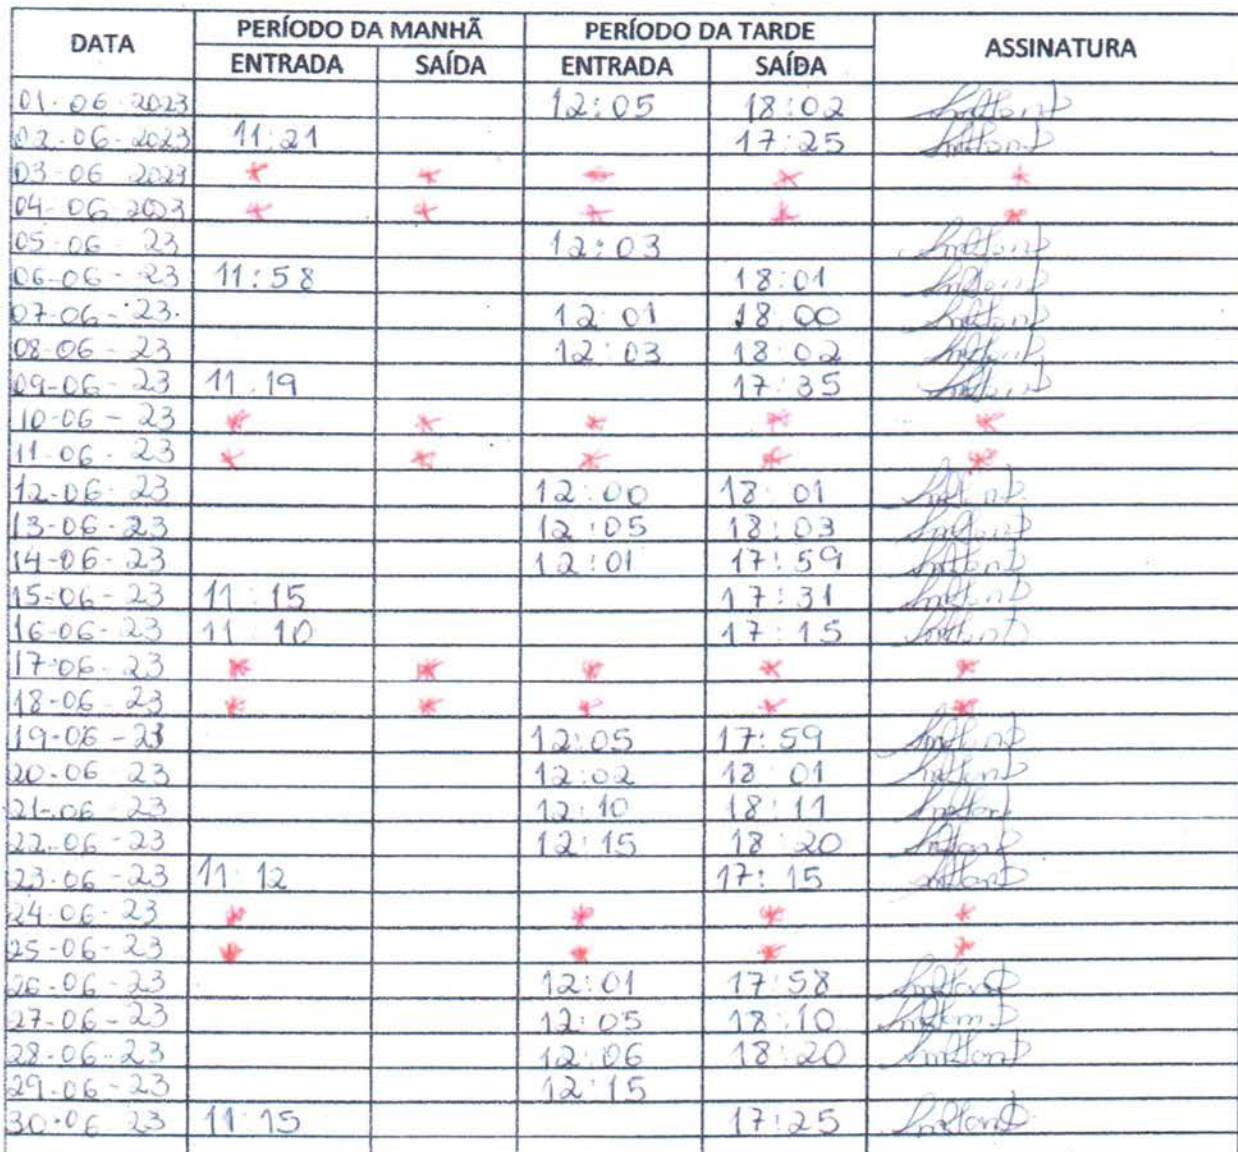 DATA PERÍODO DA MANHÃ PERÍODO DA TARDE ASSINATURA
ENTRADA SAÍDA ENTRADA SAÍDA
01-06-2023 12:05 18:02
02-06-2023 11:21 17:25
03-06 2023 * * * * *
04-06-2023 * * * * *
05-06-23 12:03
06-06-23 11:58 18:01
07-06-23. 12:01 18:00
08-06-23 12:03 18:02
09-06-23 11:19 17:35
10-06-23 * * * * *
11-06-23 * * * * *
12-06-23 12:00 18:01
13-06-23 12:05 18:03
14-06-23 12:01 17:59
15-06-23 11:15 17:31
16-06-23 11:10 17:15
17-06-23 * * * * *
18-06-23 * * * * *
19-06-23 12:05 17:59
20-06-23 12:02 18:01
21-06-23 12:10 18:11
22-06-23 12:15 18:20
23-06-23 11:12 17:15
24-06-23 * * * *
25-06-23 * * * *
26-06-23 12:01 17:58
27-06-23 12:05 18:10
28-06-23 12:06 18:20
29-06-23 12:15
30-06 23 11:15 17:25